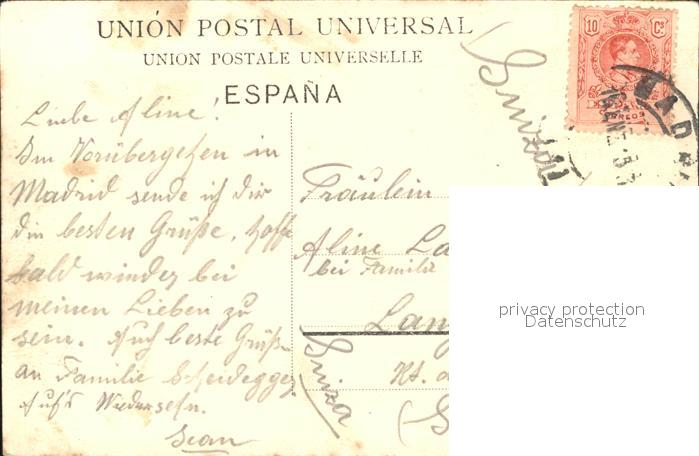 UNIÓN POSTAL UNIVERSAL
UNION POSTALE UNIVERSELLE
ESPAÑA
10 Cs
Liebe Aline!
Im Vorübergehen in
Madrid sende ich dir
die besten Grüße, hoffe
bald wieder bei
meinen Lieben zu
sein. Auch beste Grüße
an Familie Scheidegger
Auf's Wiedersehn.
Jean
Suiza
Fräulein
Aline La
bei Familie
Lan
Kt.
(S
Suiza
MAD
privacy protection
Datenschutz